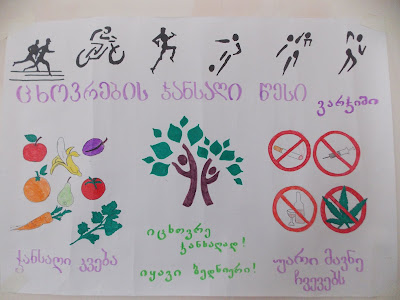 ცხოვრების ჯანსაღი წესი
ვარჯიში
იცხოვრე
ჯანსაღად!
იყავი ბედნიერი!
ჯანსაღი კვება
უარი მავნე
ჩვევებს